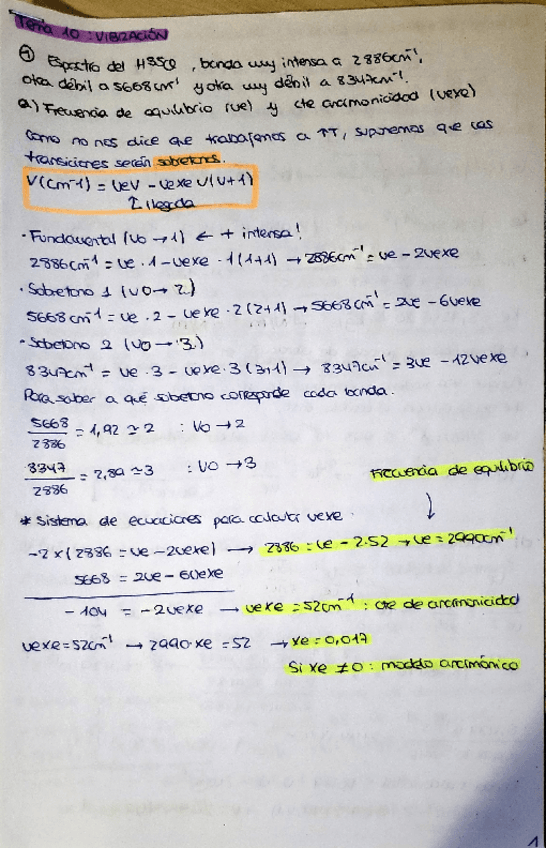 Tema 10: VIBRACIÓN
① Espectro del H35Cl, banda muy intensa a 2886cm⁻¹,
otra débil a 5668cm⁻¹ y otra muy débil a 8347cm⁻¹.
a) Frecuencia de equilibrio (νe) y cte anarmonicidad (νexe)
Como no nos dice que trabajamos a ↑T, suponemos que las
transiciones serán sobretonos.
V(cm⁻¹) = νeV - νexe V(V+1)
↑ llegada
· Fundamental (V0 → 1) ← + intensa!
2886cm⁻¹ = νe · 1 - νexe · 1(1+1) → 2886cm⁻¹ = νe - 2νexe
· Sobretono 1 (V0 → 2)
5668cm⁻¹ = νe · 2 - νexe · 2(2+1) → 5668cm⁻¹ = 2νe - 6νexe
· Sobretono 2 (V0 → 3)
8347cm⁻¹ = νe · 3 - νexe · 3(3+1) → 8347cm⁻¹ = 3νe - 12νexe
Para saber a qué sobretono corresponde cada banda.
5668/2886 = 1,92 ≃ 2 : V0 → 2
8347/2886 = 2,89 ≃ 3 : V0 → 3
Frecuencia de equilibrio
* Sistema de ecuaciones para calcular νexe. ↓
-2 × (2886 = νe - 2νexe) → 2886 = νe - 2·52 → νe = 2990cm⁻¹
5668 = 2νe - 6νexe
-104 = -2νexe → νexe = 52cm⁻¹ : cte de anarmonicidad
νexe = 52cm⁻¹ → 2990·xe = 52 → xe = 0,017
Si xe ≠ 0 : modelo anarmónico
1